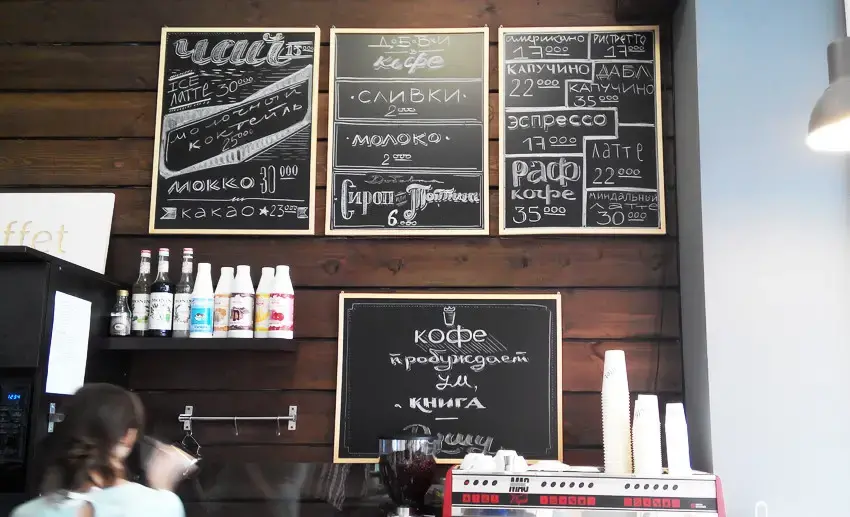 чай 15000
ICE
ЛАТТЕ 30000
МОЛОЧНЫЙ
КОКТЕЙЛЬ
25000
МОККО 30000
КАКАО ★ 23000
кофе
·СЛИВКИ·
2000
МОЛОКО·
2000
Сироп или Топпинг
6000
американо
17000
РИСТРЕТТО
17000
КАПУЧИНО
22000
ДАБЛ
КАПУЧИНО
35000
ЭСПРЕССО
17000
ЛАТТЕ
22000
РАФ
КОФЕ
35000
МИНДАЛЬНЫЙ
ЛАТТЕ
30000
ffet
КОФЕ
пробуждает
УМ,
КНИГА
Душу